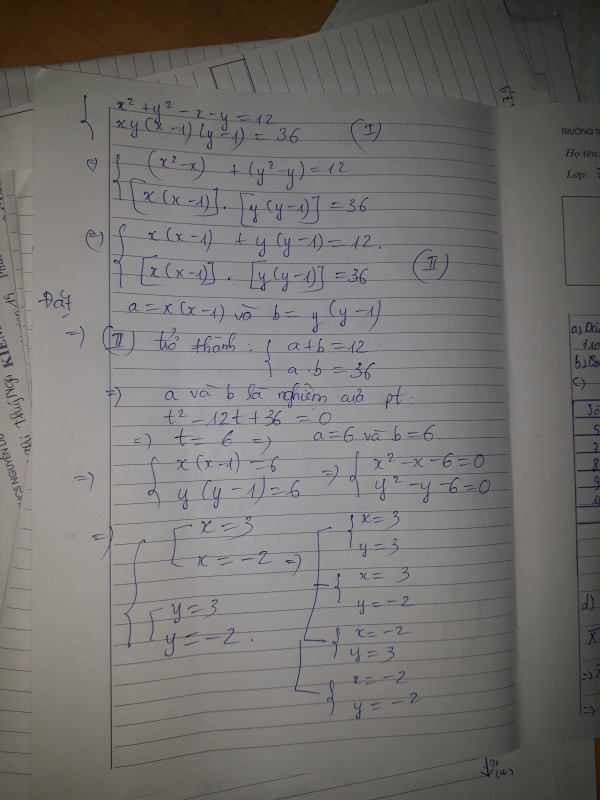 x² + y² - x - y = 12
xy(x-1)(y-1) = 36 (I)
⇔ { (x²-x) + (y²-y) = 12
[x(x-1)] . [y(y-1)] = 36
⇔ { x(x-1) + y(y-1) = 12.
[x(x-1)] . [y(y-1)] = 36 (II)
Đặt a = x(x-1) và b = y(y-1)
⇒ (II) trở thành: { a+b = 12
a.b = 36
⇒ a và b là nghiệm của pt.
t² - 12t + 36 = 0
⇒ t = 6 ⇒ a = 6 và b = 6.
⇒ { x(x-1) = 6 ⇒ { x² - x - 6 = 0
y(y-1) = 6 y² - y - 6 = 0
⇒ { [ x = 3
x = -2 ⇒
[ y = 3
y = -2.
[ { x = 3
y = 3
{ x = 3
y = -2
{ x = -2
y = 3
{ x = -2
y = -2
TRƯỜNG
Họ tên:
Lớp:
b)
c)
d)